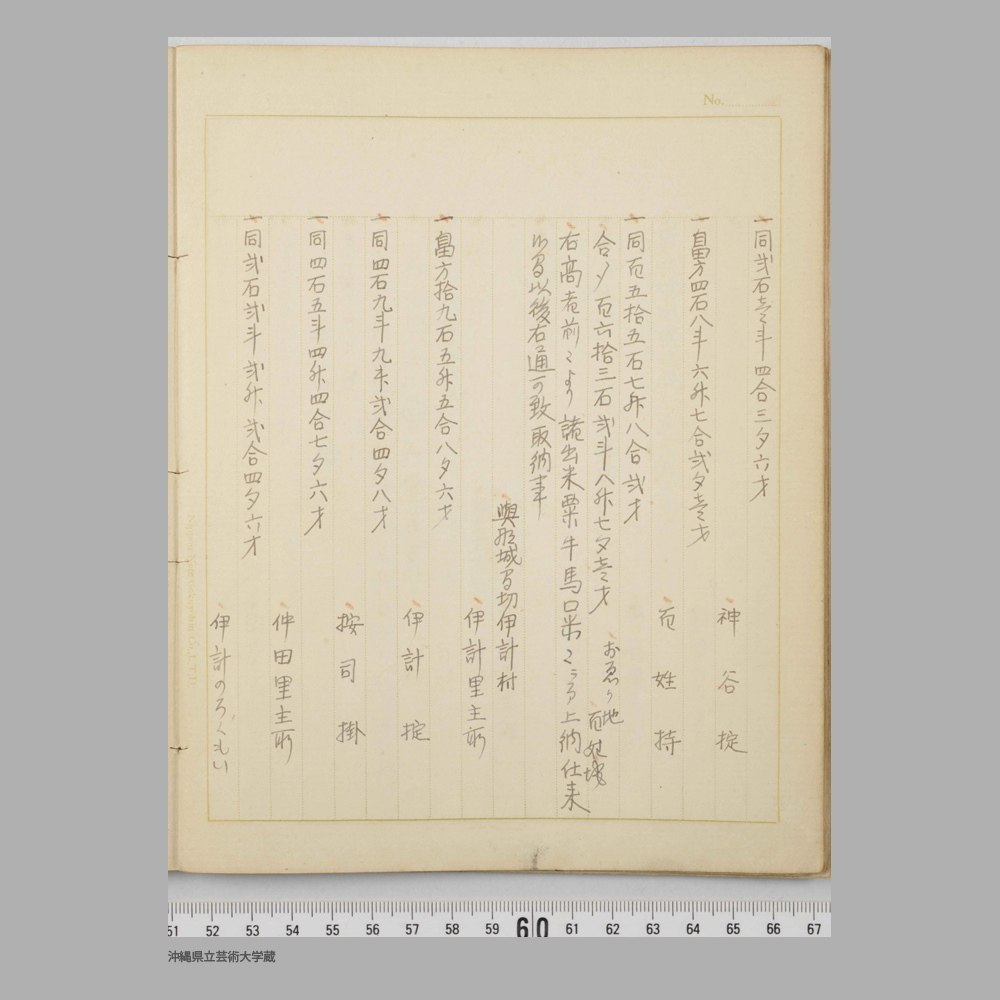 No.
一同弐石壱斗四合三夕六才
神谷掟
一畠方四石八斗六升七合弐夕壱才
百姓持
一同百五拾五石七升八合弐才
合〆百六拾三石弐斗八升七夕壱才
おゑか地
百姓地
右高者前々より諸出米粟牛馬口米こ而上納仕来
候間以後右通可致取納事
與那城間切伊計村
伊計里主所
一畠方拾九石五升五合八夕六才
伊計掟
一同四石九斗九升弐合四夕八才
按司掛
一同四石五斗四升四合七夕六才
仲田里主所
一同弐石弐斗弐升弐合四夕六才
伊計のろくもい
51 52 53 54 55 56 57 58 59 60 61 62 63 64 65 66 67
沖縄県立芸術大学蔵